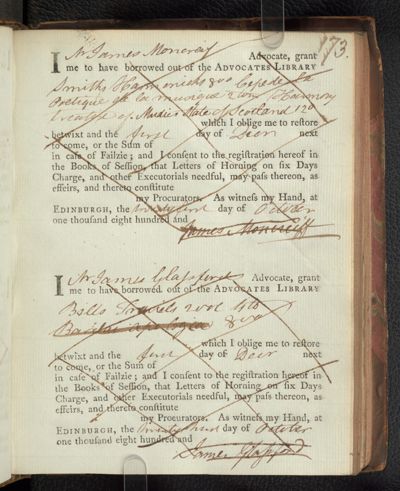 173.
I Mr James Moncreif Advocate, grant
me to have borrowed out of the ADVOCATES LIBRARY
Smiths Harmonicks 8vo Cepede La
Poetique de la musique 2 vol Harmony
of Mackie State of Scotland 12o
which I oblige to restore
betwixt and the first day of Decr next
to come, or the Sum of
in case of Failzie; and I consent to the registration hereof in
the Books of Session, that Letters of Horning on six Days
Charge, and other Executorials needful, may pass thereon, as
effeirs, and thereto constitute
my Procurators. As witness my Hand, at
EDINBURGH, the day of October
one thousand eight hundred and
James Moncreiff
I Mr James Clapperd Advocate, grant
me to have borrowed out of the ADVOCATES LIBRARY
Bells Travels 2 vol 4to
8vo
which I oblige me to restore
betwixt and the first day of Decr next
to come, or the Sum of
in case of Failzie; and I consent to the registration hereof in
the Books of Session, that Letters of Horning on six Days
Charge, and other Executorials needful, may pass thereon, as
effeirs, and thereto constitute
my Procurators. As witness my Hand, at
EDINBURGH, the day of October
one thousand eight hundred and
James